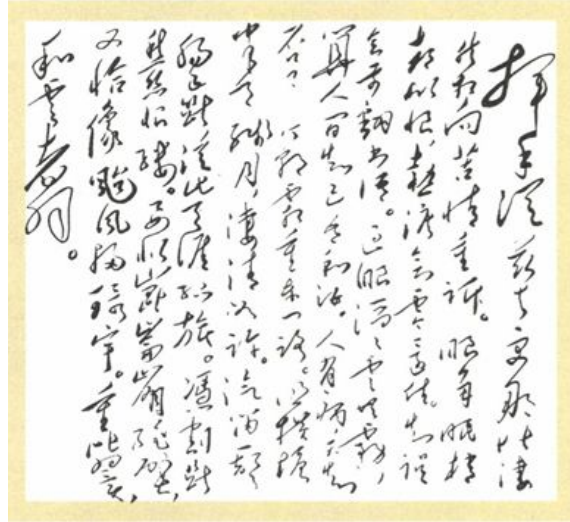 挥手从兹去更那堪凄
然相向苦情重诉。眼角眉梢
都似恨,热泪欲零还住。知误
会前翻书语。过眼滔滔云共雾,
算人间知己吾和汝。人有病天知
否?今朝霜重东门路。照横塘
半天残月,凄清如许。汽笛一声
肠已断从此天涯孤旅。凭割断
愁丝恨缕。要似崑崙崩绝壁,
又恰像颱风扫环宇。重比翼,
和云翥。